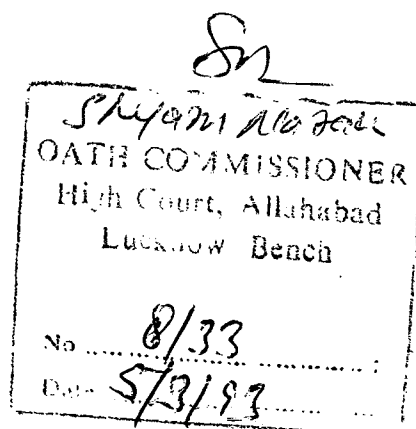 Shyam
OATH COMMISSIONER
High Court, Allahabad
Lucknow Bench
No 8/33
Date 5/3/93